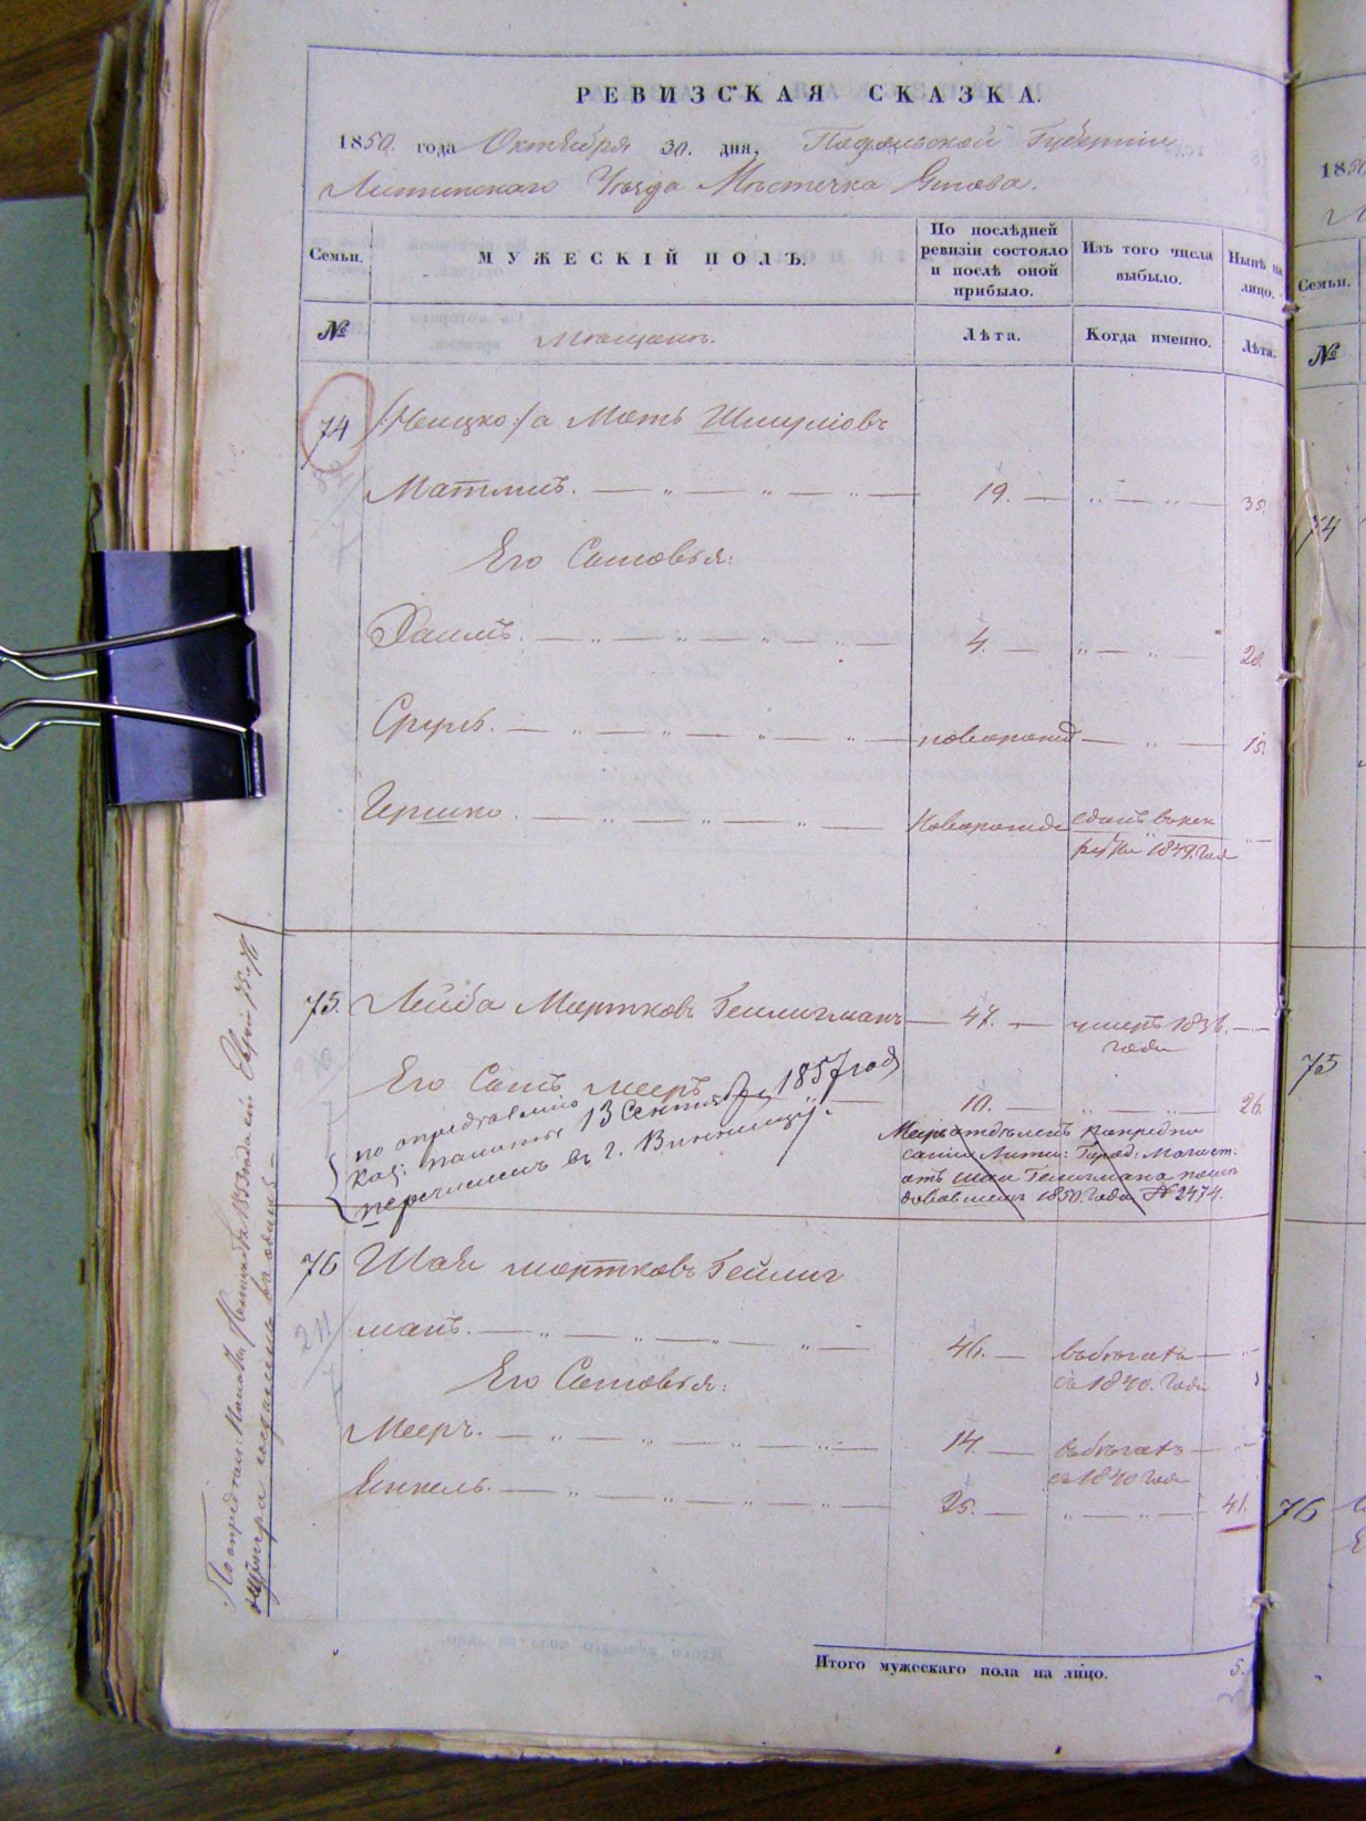 РЕВИЗСКАЯ СКАЗКА.
1850. года Октября 30. дня, Подольской Губерніи
Литинскаго Уѣзда Мѣстечка Янова.
Семьи.
МУЖЕСКІЙ ПОЛЪ.
По послѣдней ревизіи состояло и послѣ оной прибыло.
Изъ того числа выбыло.
Нынѣ на лицо.
№
Мѣщанъ.
Лѣта.
Когда именно.
Лѣта.
74 а Моть Шмулiовъ
19. 35.
Его Сыновья:
Хаимъ. 4. 20.
Сруль. новорожд 15.
Гершко. Новорожде сданъ въ рек
руты 1849. Года
75. Лейба Мортковъ Гейлигманъ 47. умеръ 1836.
года
Его Сынъ Мееръ 10. 26.
по опредѣленію
Каз: палаты 13 Сентября 1857 года
перечисленъ въ г. Винницу.
Мееръ отдѣленъ по предпи
санію Литин: Город: Магист.
отъ Шаи Гейлигмана послѣ
1850. Года № 2474.
76 Шая Мортковъ Гейлиг
манъ. 46. въ бѣгахъ
съ 1840. Года
Его Сыновья:
Мееръ. 14. въ бѣгахъ
съ 1840 Года
Янкель. 25. 41.
Итого мужескаго пола на лицо. 5.
1850
Семьи.
№
74
75
76